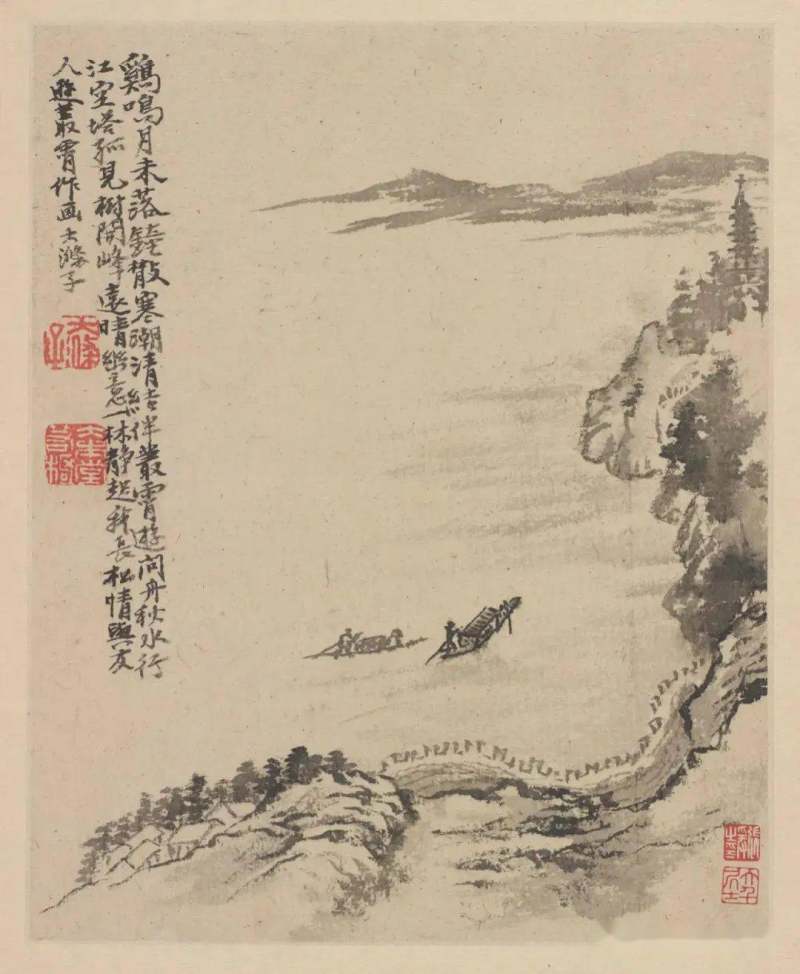 鷄鳴月未落鐘散寒潮清結伴叢霄遊問舟秋水行
江空塔孤見樹開峰遠晴幽意一林靜超我長松情與友
人遊叢霄作画大滌子